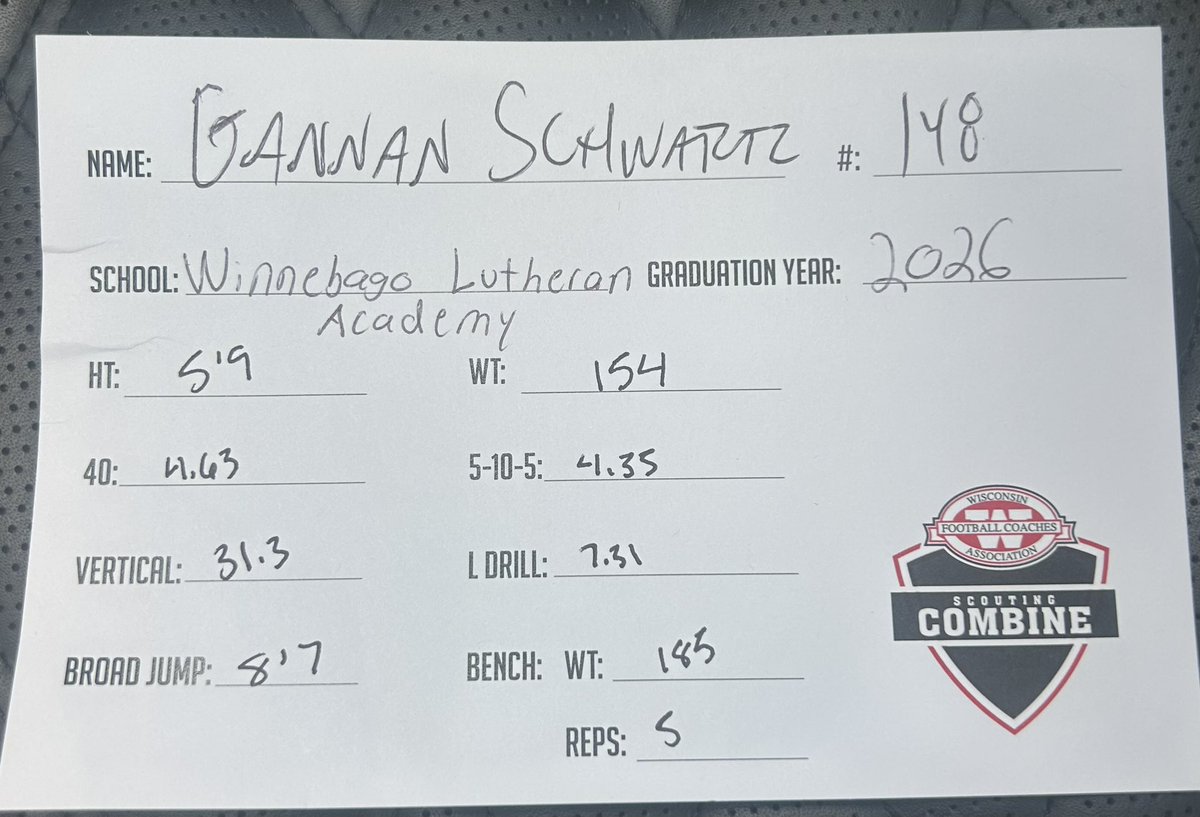 NAME: GANNAN SCHWARTZ #: 148
SCHOOL: Winnebago Lutheran GRADUATION YEAR: 2026
Academy
HT: 5'9 WT: 154
40: 4.63 5-10-5: 4.35
VERTICAL: 31.3 L DRILL: 7.31
BROAD JUMP: 8'7 BENCH: WT: 185
REPS: 5
WISCONSIN
W
FOOTBALL COACHES
ASSOCIATION
SCOUTING
COMBINE